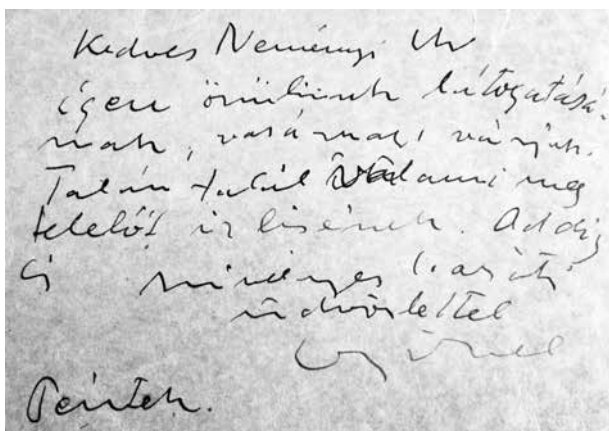 Kedves Neményi Úr
igen örülünk látogatásá-
nak, vasárnap várjuk.
Talán talál valami meg
felelőt ízlésének. Addig
is szívélyes baráti
üdvözlettel
Péntek.